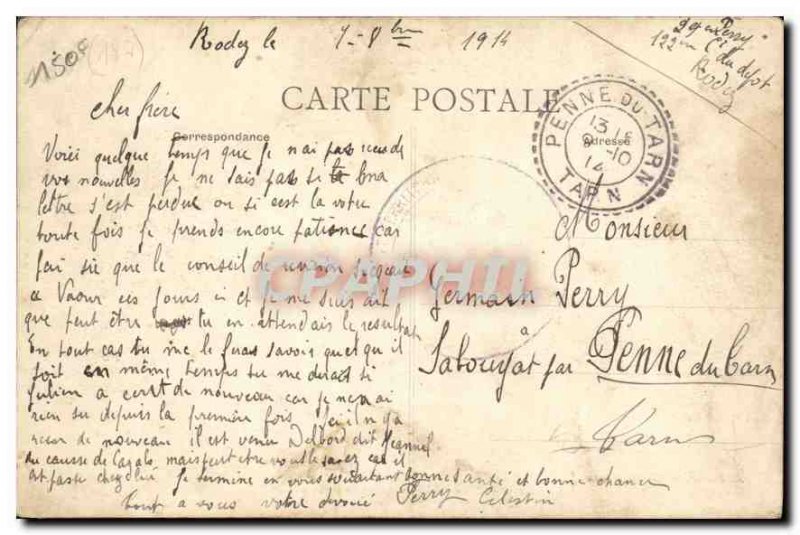 Rodez le 7-8bre 1914
Perry
122me Cie du dépot
Rodez
1150f
CARTE POSTALE
Correspondance
Adresse
PENNE DU TARN
13
-10
14
TARN
cher frère
Voici quelque temps que je n'ai pas reçu de
vos nouvelles je ne sais pas si ma
lettre s'est perdue ou si c'est la votre
toute fois je prends encore patience car
j'ai sû que le conseil de revision siégeait
a Vaour ces jours ci et je me suis dit
que peut être tu en attendais le resultat
En tout cas tu me le feras savoir quel qu'il
soit en même temps tu me diras si
julien a ecrit de nouveau car je n'ai
rien su depuis la première fois. ici il n'y a
rien de nouveau il est venu Delbord dit Jeannel
du causse de mais peut etre vous le savez car il
est passé je termine en vous souhaitant bonne santé et bonne chance
tout a vous votre devoué Perry Célestin
Monsieur
Germain Perry
à
par Penne du Tarn
Tarn
CPAPHIL